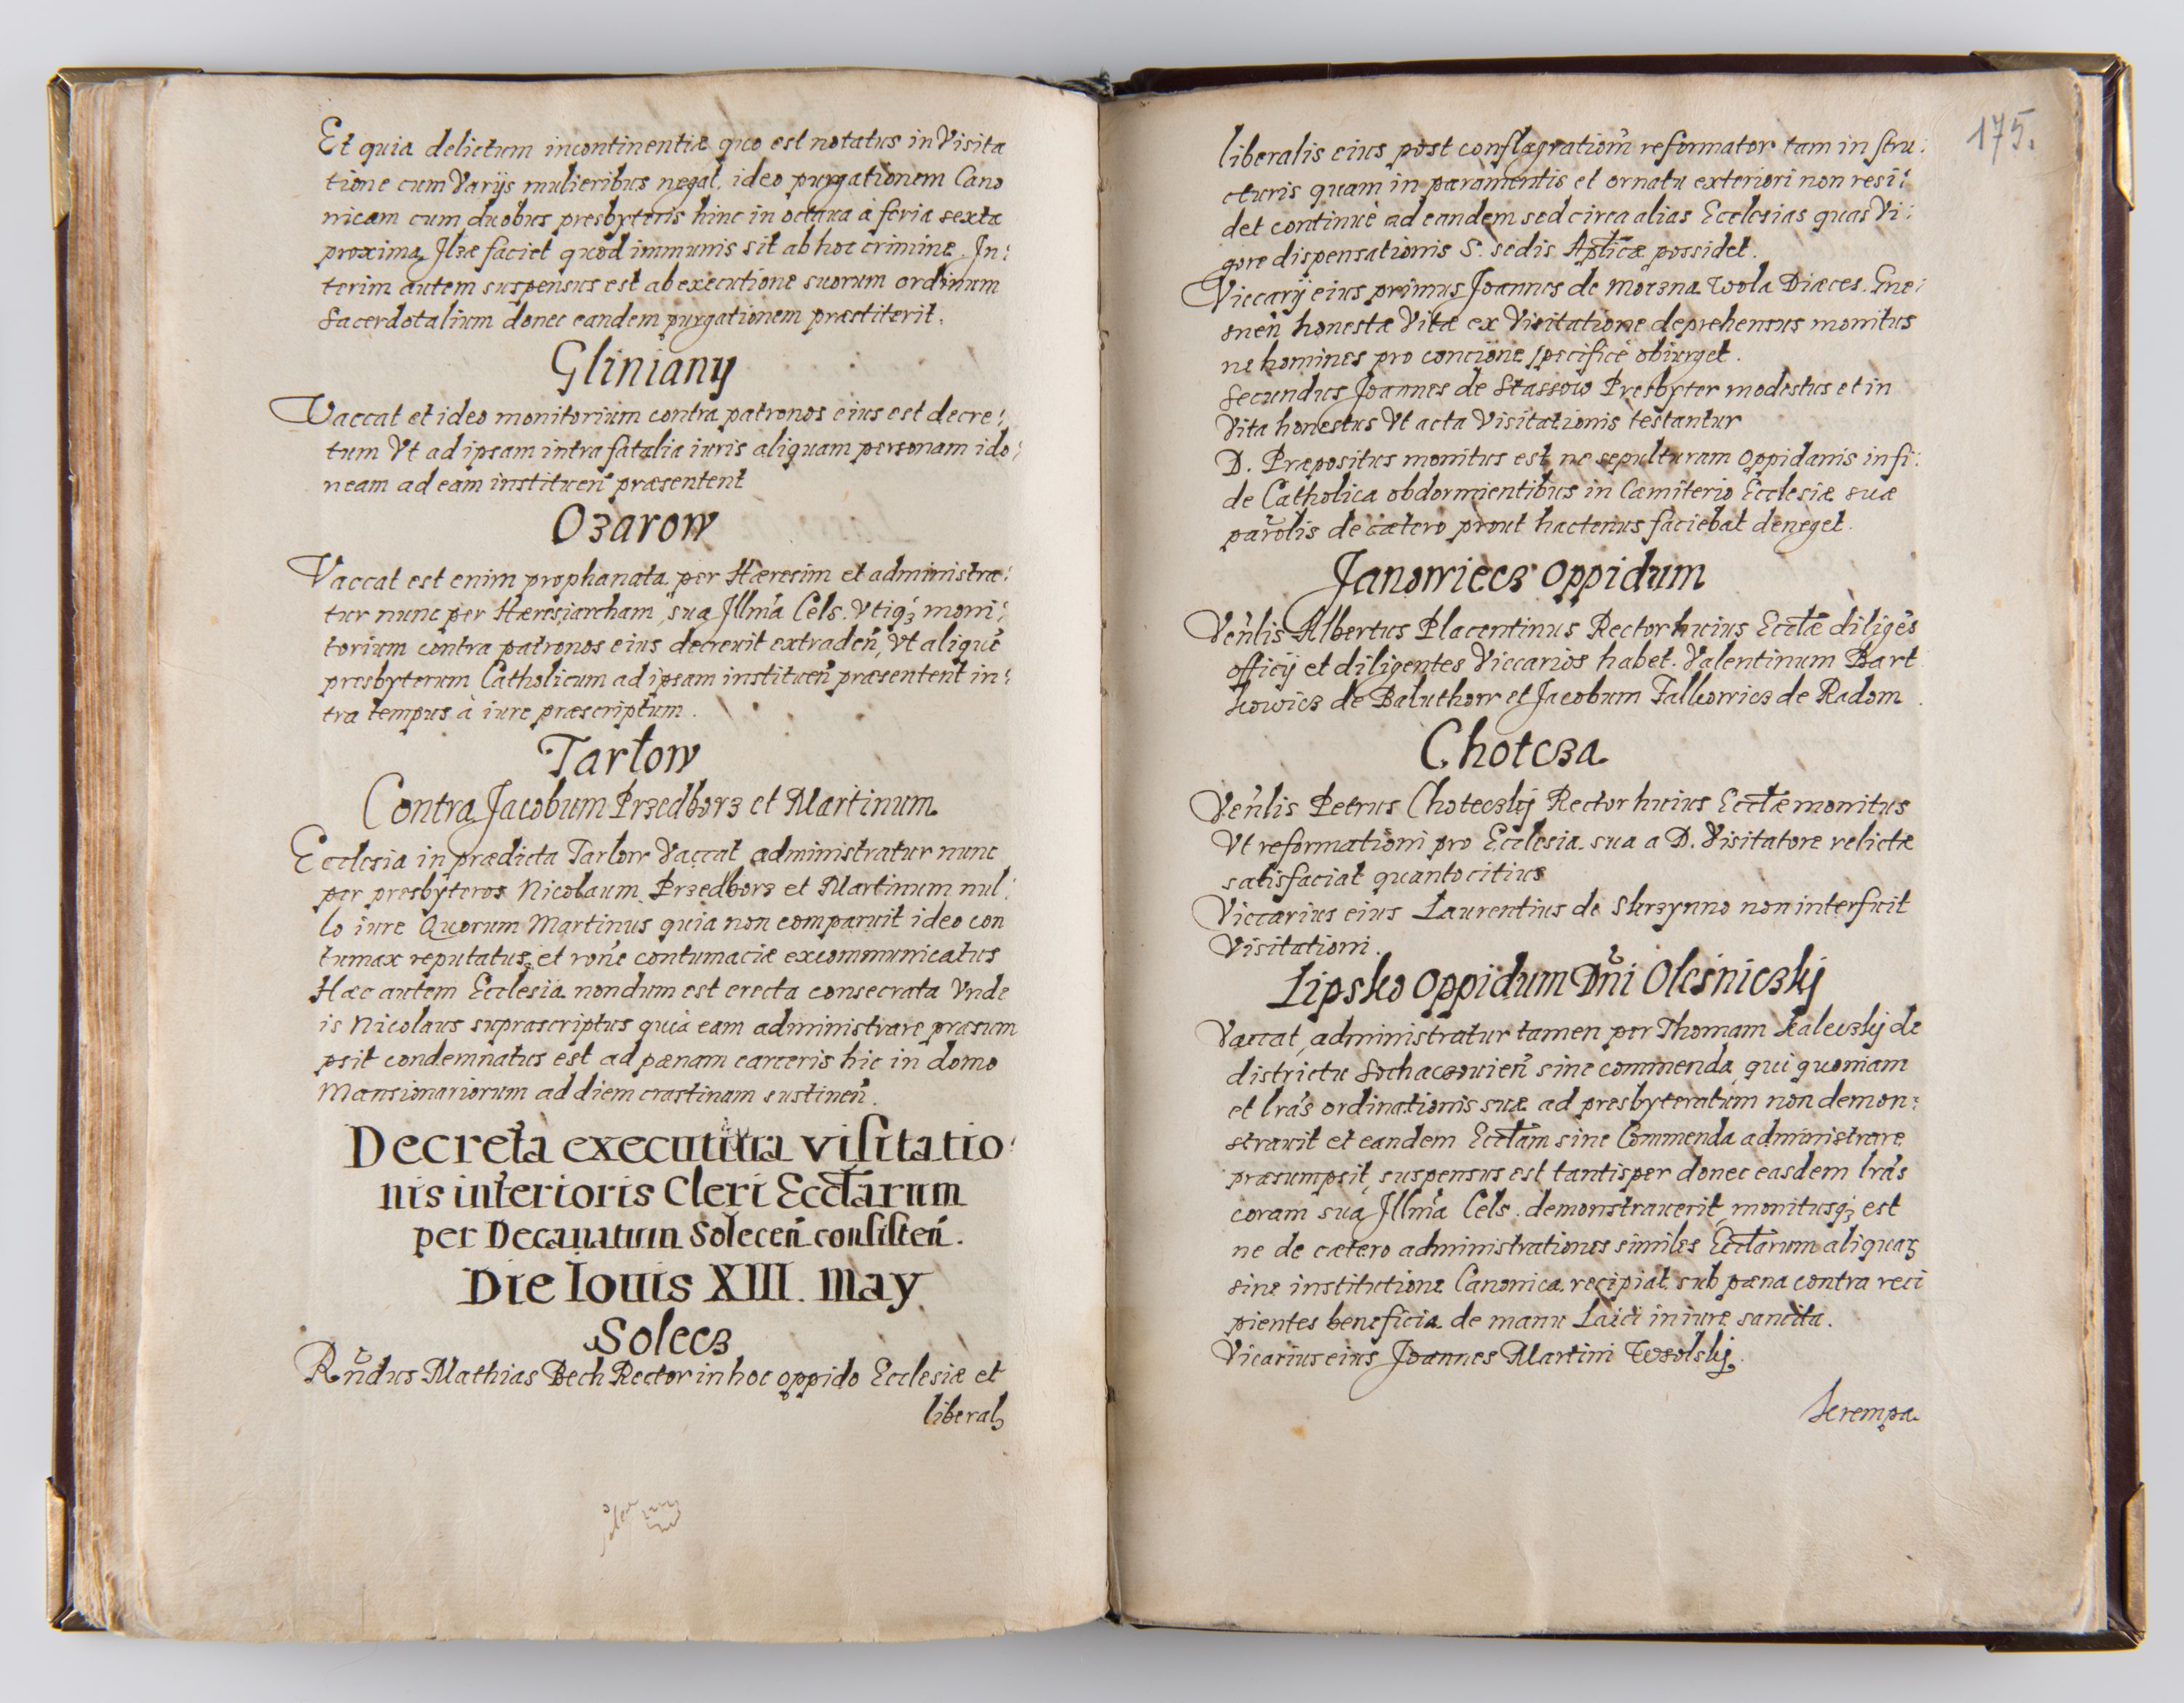 Et quia delictum incontinentiæ quo est notatus in Visita
tione cum Varijs mulieribus negat, ideo purgationem Cano
nicam cum duobus presbyteris hinc in octaua à feria sexta
proxima Ilzæ faciet quod immunis sit ab hoc crimine. In:
terim autem suspensus est ab executione suorum ordinum
sacerdotalium donec eandem purgationem præstiterit.
Gliniany
Vaccat et ideo monitorium contra patronos eius est decre:
tum Vt ad ipsam intra fatalia iuris aliquam personam ido:
neam ad eam instituen̄ præsentent
Ozarow
Vaccat est enim prophanata per Hæresim et administra:
tur nunc per Hæresiarcham, sua Illm̄a Cels. Vtiqꝫ moni:
torium contra patronos eius decreuit extraden̄, Vt aliquē
presbyterum Catholicum ad ipsam instituen̄ præsentent in:
tra tempus à iure præscriptum.
Tarłow
Contra Jacobum Przedborz et Martinum
Ecclesia in prædicta Tarłow Vaccat administratur nunc
per presbyteros Nicolaum Przedborz et Martinum nul:
lo iure Quorum Martinus quia non comparuit ideo con
tumax reputatus et ron̄e contumaciæ excommunicatus
Hæc autem Ecclesia nondum est erecta consecrata Vnde
is Nicolaus suprascriptus quia eam administrare præsum
psit condemnatus est ad pænam carceris hic in domo
Mansionariorum ad diem crastinam sustinen̄.
Decreta executiua visitatio:
nis interioris Cleri Eccl̄arum
per Decanatum Solecen̄ consisten̄.
Die Iouis XIII. May
Solecz
Rn̄dus Mathias Bech Rector in hoc oppido Ecclesiæ et
liberalꝫ
175.
liberalis eius post conflagration̄m reformator tam in stru:
cturis quam in paramentis et ornatu exteriori non resi:
det continuè ad eandem sed circa alias Ecclesias quas Vi:
gore dispensationis S. sedis Apl̄icæ possidet.
Viccarij eius primus Joannes de Morzna Wola Diæces. Gne:
snen̄ honestæ Vitæ ex Visitatione deprehensus monitus
ne homines pro concione specificè obiurget.
Secundus Joannes de Stassow Presbyter modestus et in
Vita honestus Vt acta Visitationis testantur
D. Præpositus monitus est ne sepulturam oppidanis in fi:
de Catholica obdormientibus in Cæmiterio Ecclesiæ suæ
parōlis de cætero prout hactenus faciebat deneget.
Janowiecz oppidum
Ven̄lis Albertus Placentinus Rector huius Eccl̄æ diligēs
officij et diligentes Viccarios habet. Valentinum Bart
kowicz de Baluthow et Jacobum Falkowicz de Radom.
Chotcza
Ven̄lis Petrus Choteczkij Rector huius Eccl̄æ monitus
Vt reformationi pro Ecclesia sua a D. Visitatore relictæ
satisfaciat quantocitius
Viccarius eius Laurentius de Skrzynno non interfuit
Visitationi.
Lipsko oppidum Dn̄i Olesniczkij
Vaccat, administratur tamen per Thomam kaleczkij de
districtu Sochaczouien̄ sine commenda qui quoniam
et lrās ordinationis suæ ad presbyteratum non demon:
strauit et eandem Eccl̄am sine Commenda administrare
præsumpsit, suspensus est tantisper donec easdem lrās
coram sua Illm̄a Cels. demonstrauerit, monitusqꝫ est
ne de cætero administrationes similes Eccl̄arum aliquas
sine institutione Canonica recipiat sub pæna contra reci
pientes beneficia de manu Laici in iure sancita.
Vicarius eius Joannes Martini Wsolskij.
krempa